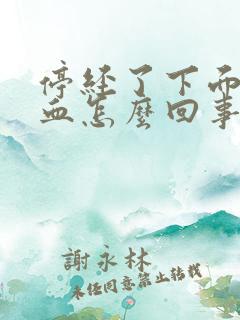 停經了下面
血怎麼回事
謝永林
未經同意禁止轉載